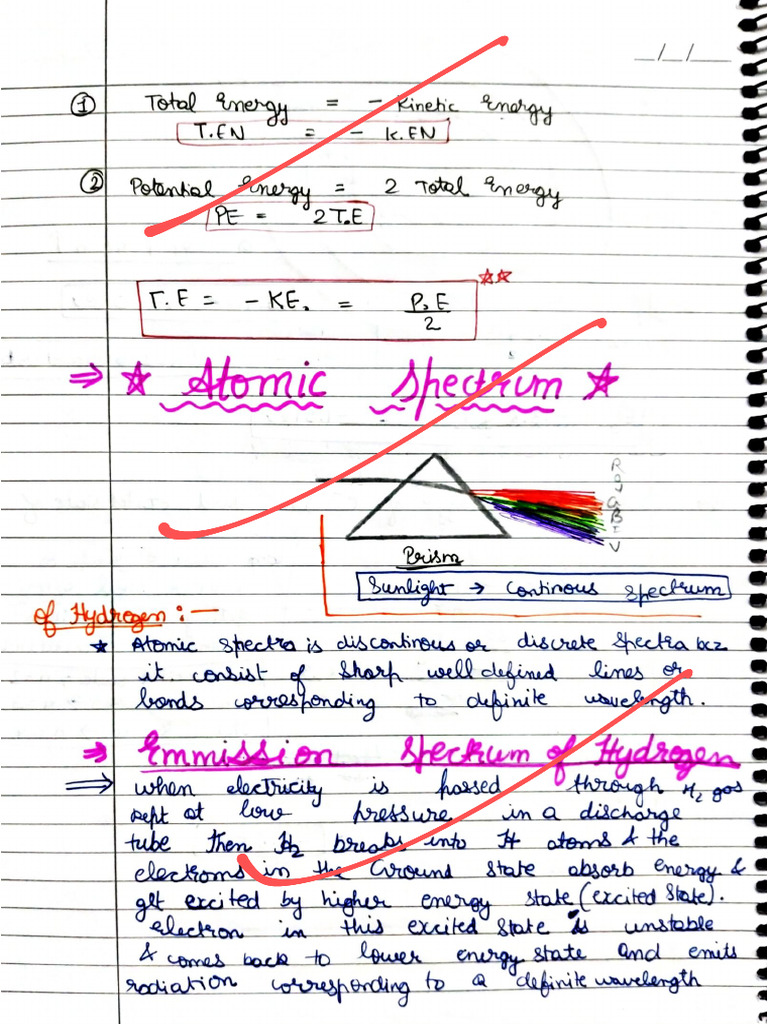 _/_/__
① Total Energy = - Kinetic Energy
T.EN = - K.EN
② Potential Energy = 2 Total Energy
PE = 2 T.E
T.E = - KE. = P.E/2 ☆☆
⇒ ☆ Atomic Spectrum ☆
R
O
Y
G
B
I
V
Prism
Sunlight → Continous Spectrum
of Hydrogen :-
★ Atomic Spectra is discontinous or discrete spectra bcz
it consist of sharp well defined lines or
bands corresponding to definite wavelength.
⇒ Emmission Spectrum of Hydrogen
⇒ when electricity is passed through H₂ gas
kept at low pressure in a discharge
tube then H₂ breaks into H atoms & the
electrons in the Ground state absorb energy &
get excited by higher energy state (excited state).
electron in this excited state is unstable
& comes back to lower energy state and emits
radiation corresponding to a definite wavelength